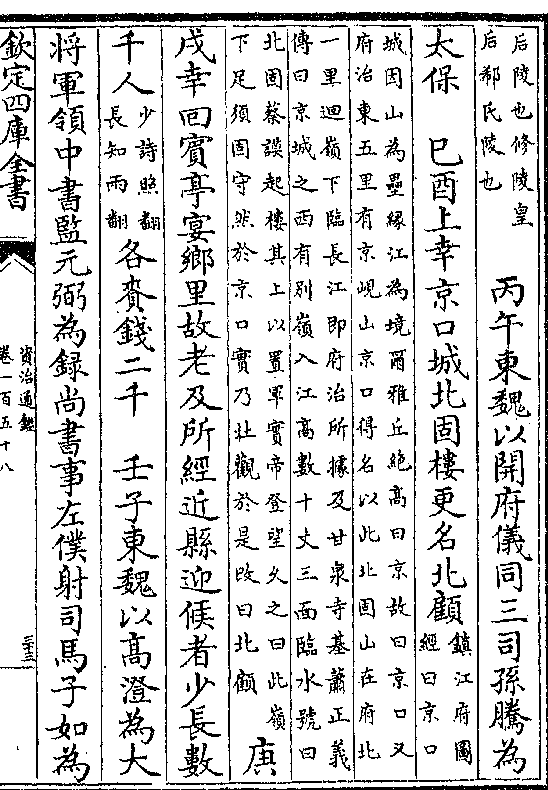 后陵也修陵皇
后郗氏陵也
丙午東魏以開府儀同三司孫騰為
太保　己酉上幸京口城北固樓更名北顧
鎮江府圖
經曰京口
城因山為壘緣江為境爾雅丘絶高曰京故曰京口又
府治東五里有京峴山京口得名以此北固山在府北
一里迴嶺下臨長江即府治所據及甘泉寺基蕭正義
傳曰京城之西有别嶺入江高數十丈三面臨水號曰
北固蔡謨起樓其上以置軍實帝登望久之曰此嶺
下足須固守然於京口實乃壯觀於是改曰北顧
庚
戌幸回賓亭宴鄉里故老及所經近縣迎候者少長數
千人
少詩照翻
長知兩翻
各賚錢二千　壬子東魏以高澄為大
將軍領中書監元弼為録尚書事左僕射司馬子如為
欽定四庫全書
資治通鑑
卷一百五十八
三十三